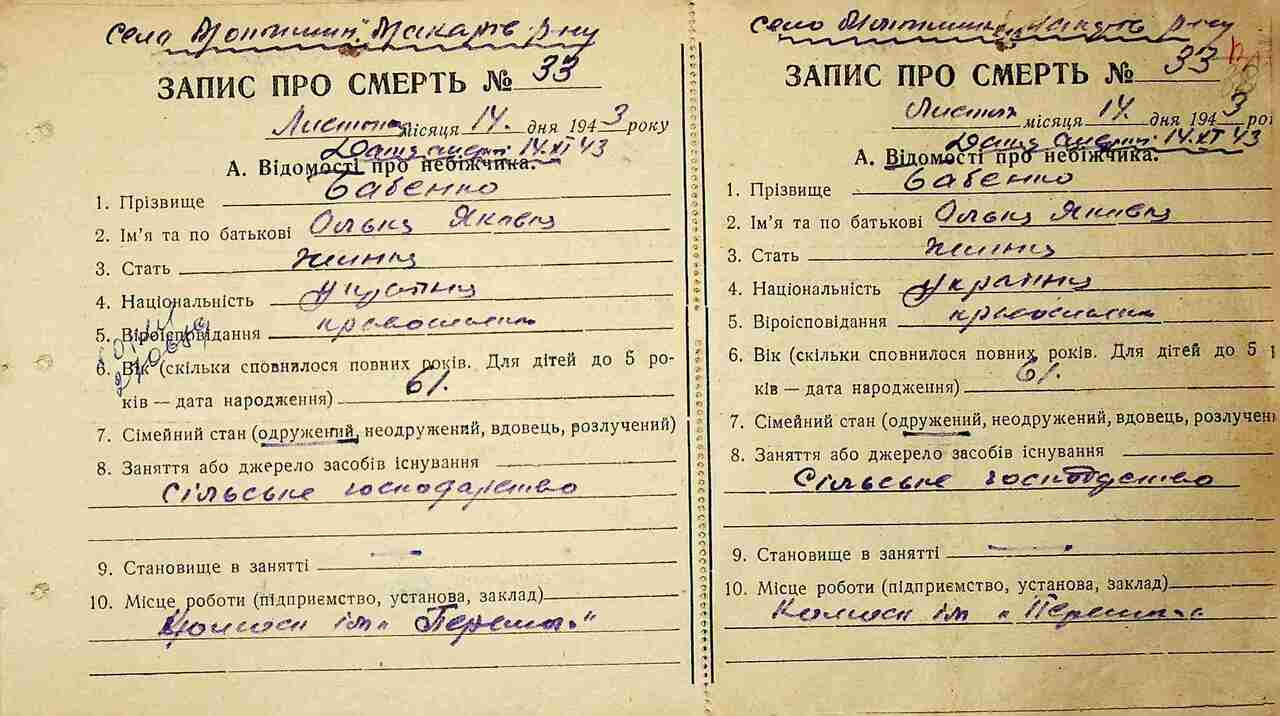 село Мотижин Макарів р-ну
ЗАПИС ПРО СМЕРТЬ № 33
Листопа місяця 14. дня 1943 року
Дата смерті 14.XI 43
А. Відомості про небіжчика.
1. Прізвище Бабенко
2. Ім'я та по батькові Ольга Яківна
3. Стать жінка
4. Національність українка
5. Віроісповідання православна
6. Вік (скільки сповнилося повних років. Для дітей до 5 ро-
ків — дата народження) 61.
7. Сімейний стан (одружений, неодружений, вдовець, розлучений)
8. Заняття або джерело засобів існування
Сільське господарство
9. Становище в занятті —
10. Місце роботи (підприємство, установа, заклад)
Колгосп ім „Перемога"
село Мотижин Макарів р-ну
ЗАПИС ПРО СМЕРТЬ № 33
Листопа місяця 14. дня 1943 рої
Дата смерті 14.XI 43
А. Відомості про небіжчика.
1. Прізвище Бабенко
2. Ім'я та по батькові Ольга Яківна
3. Стать жінка
4. Національність українка
5. Віроісповідання православна
6. Вік (скільки сповнилося повних років. Для дітей до 5 р
ків — дата народження) 61.
7. Сімейний стан (одружений, неодружений, вдовець, розлучени
8. Заняття або джерело засобів існування
Сільське господарство
9. Становище в занятті —
10. Місце роботи (підприємство, установа, заклад)
Колгосп ім „Перемога